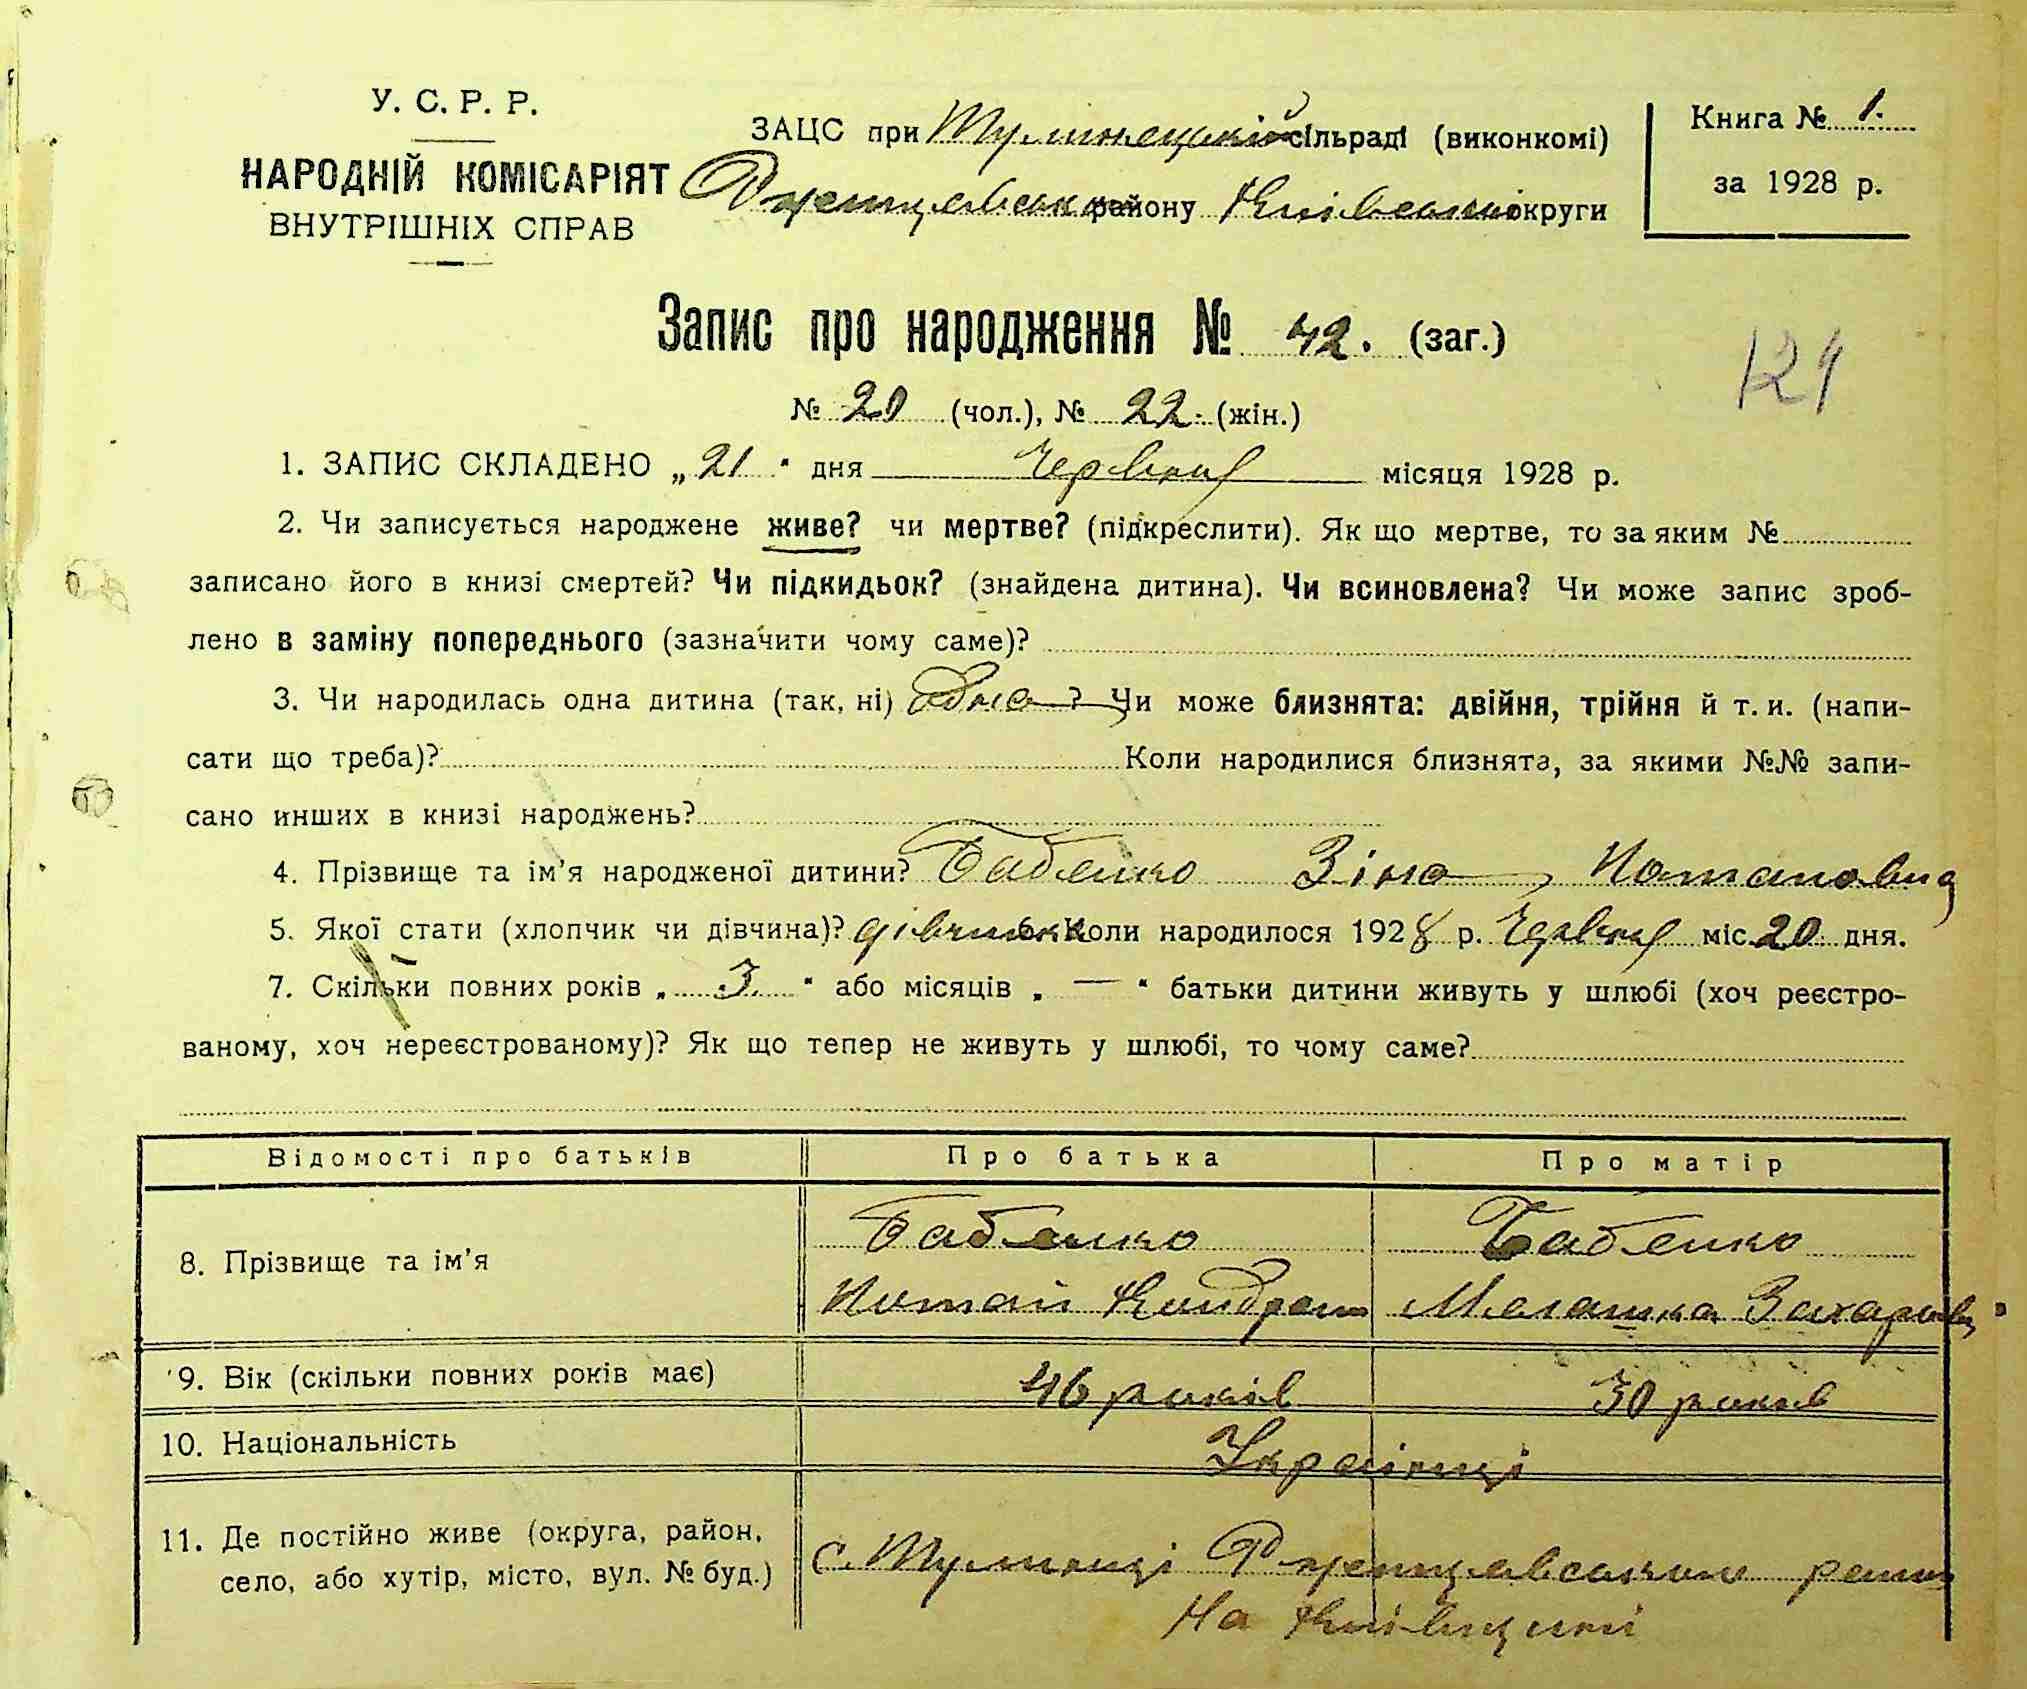 У. С. Р. Р.
НАРОДНІЙ КОМІСАРІЯТ
ВНУТРІШНІХ СПРАВ
ЗАЦС при Тулинецькій сільраді (виконкомі)
Ржищівськ району Київської округи
Книга № 1.
за 1928 р.
Запис про народження № 42. (заг.)
121
№ 20 (чол.), № 22. (жін.)
1. ЗАПИС СКЛАДЕНО „21" дня Червня місяця 1928 р.
2. Чи записується народжене живе? чи мертве? (підкреслити). Як що мертве, то за яким №
записано його в книзі смертей? Чи підкидьок? (знайдена дитина). Чи всиновлена? Чи може запис зроб-
лено в заміну попереднього (зазначити чому саме)?
3. Чи народилась одна дитина (так, ні) Одна? Чи може близнята: двійня, трійня й т. и. (напи-
сати що треба)? Коли народилися близнята, за якими №№ запи-
сано инших в книзі народжень?
4. Прізвище та ім'я народженої дитини? Бабенко Зіна Потаповна
5. Якої стати (хлопчик чи дівчина)? дівчинка 6. Коли народилося 1928 р. Червня міс. 20 дня.
7. Скільки повних років „ 3. " або місяців „ — " батьки дитини живуть у шлюбі (хоч реєстро-
ваному, хоч нереєстрованому)? Як що тепер не живуть у шлюбі, то чому саме?
Відомості про батьків Про батька Про матір
8. Прізвище та ім'я Бабенко Бабенко
Потап Кіндрат Мелашка Захаровн
9. Вік (скільки повних років має) 46 років 30 років
10. Національність Українці
11. Де постійно живе (округа, район,
село, або хутір, місто, вул. № буд.)
с. Тулинці Ржищевського рай
На Київщині